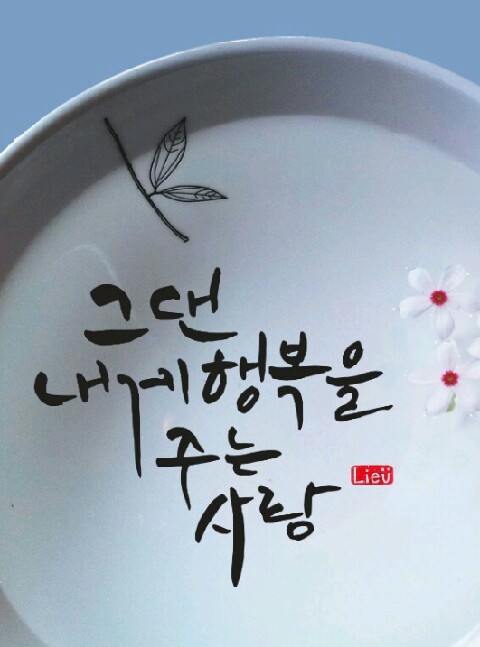 그댄
내게 행복을
주는
사랑
Lieu